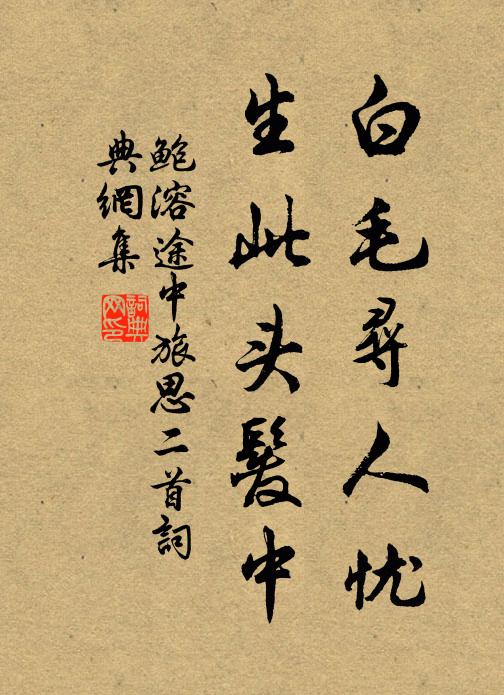 白毛尋人忧
生此头髮中
鲍溶途中旅思二首詞
典網集
詞典
网印